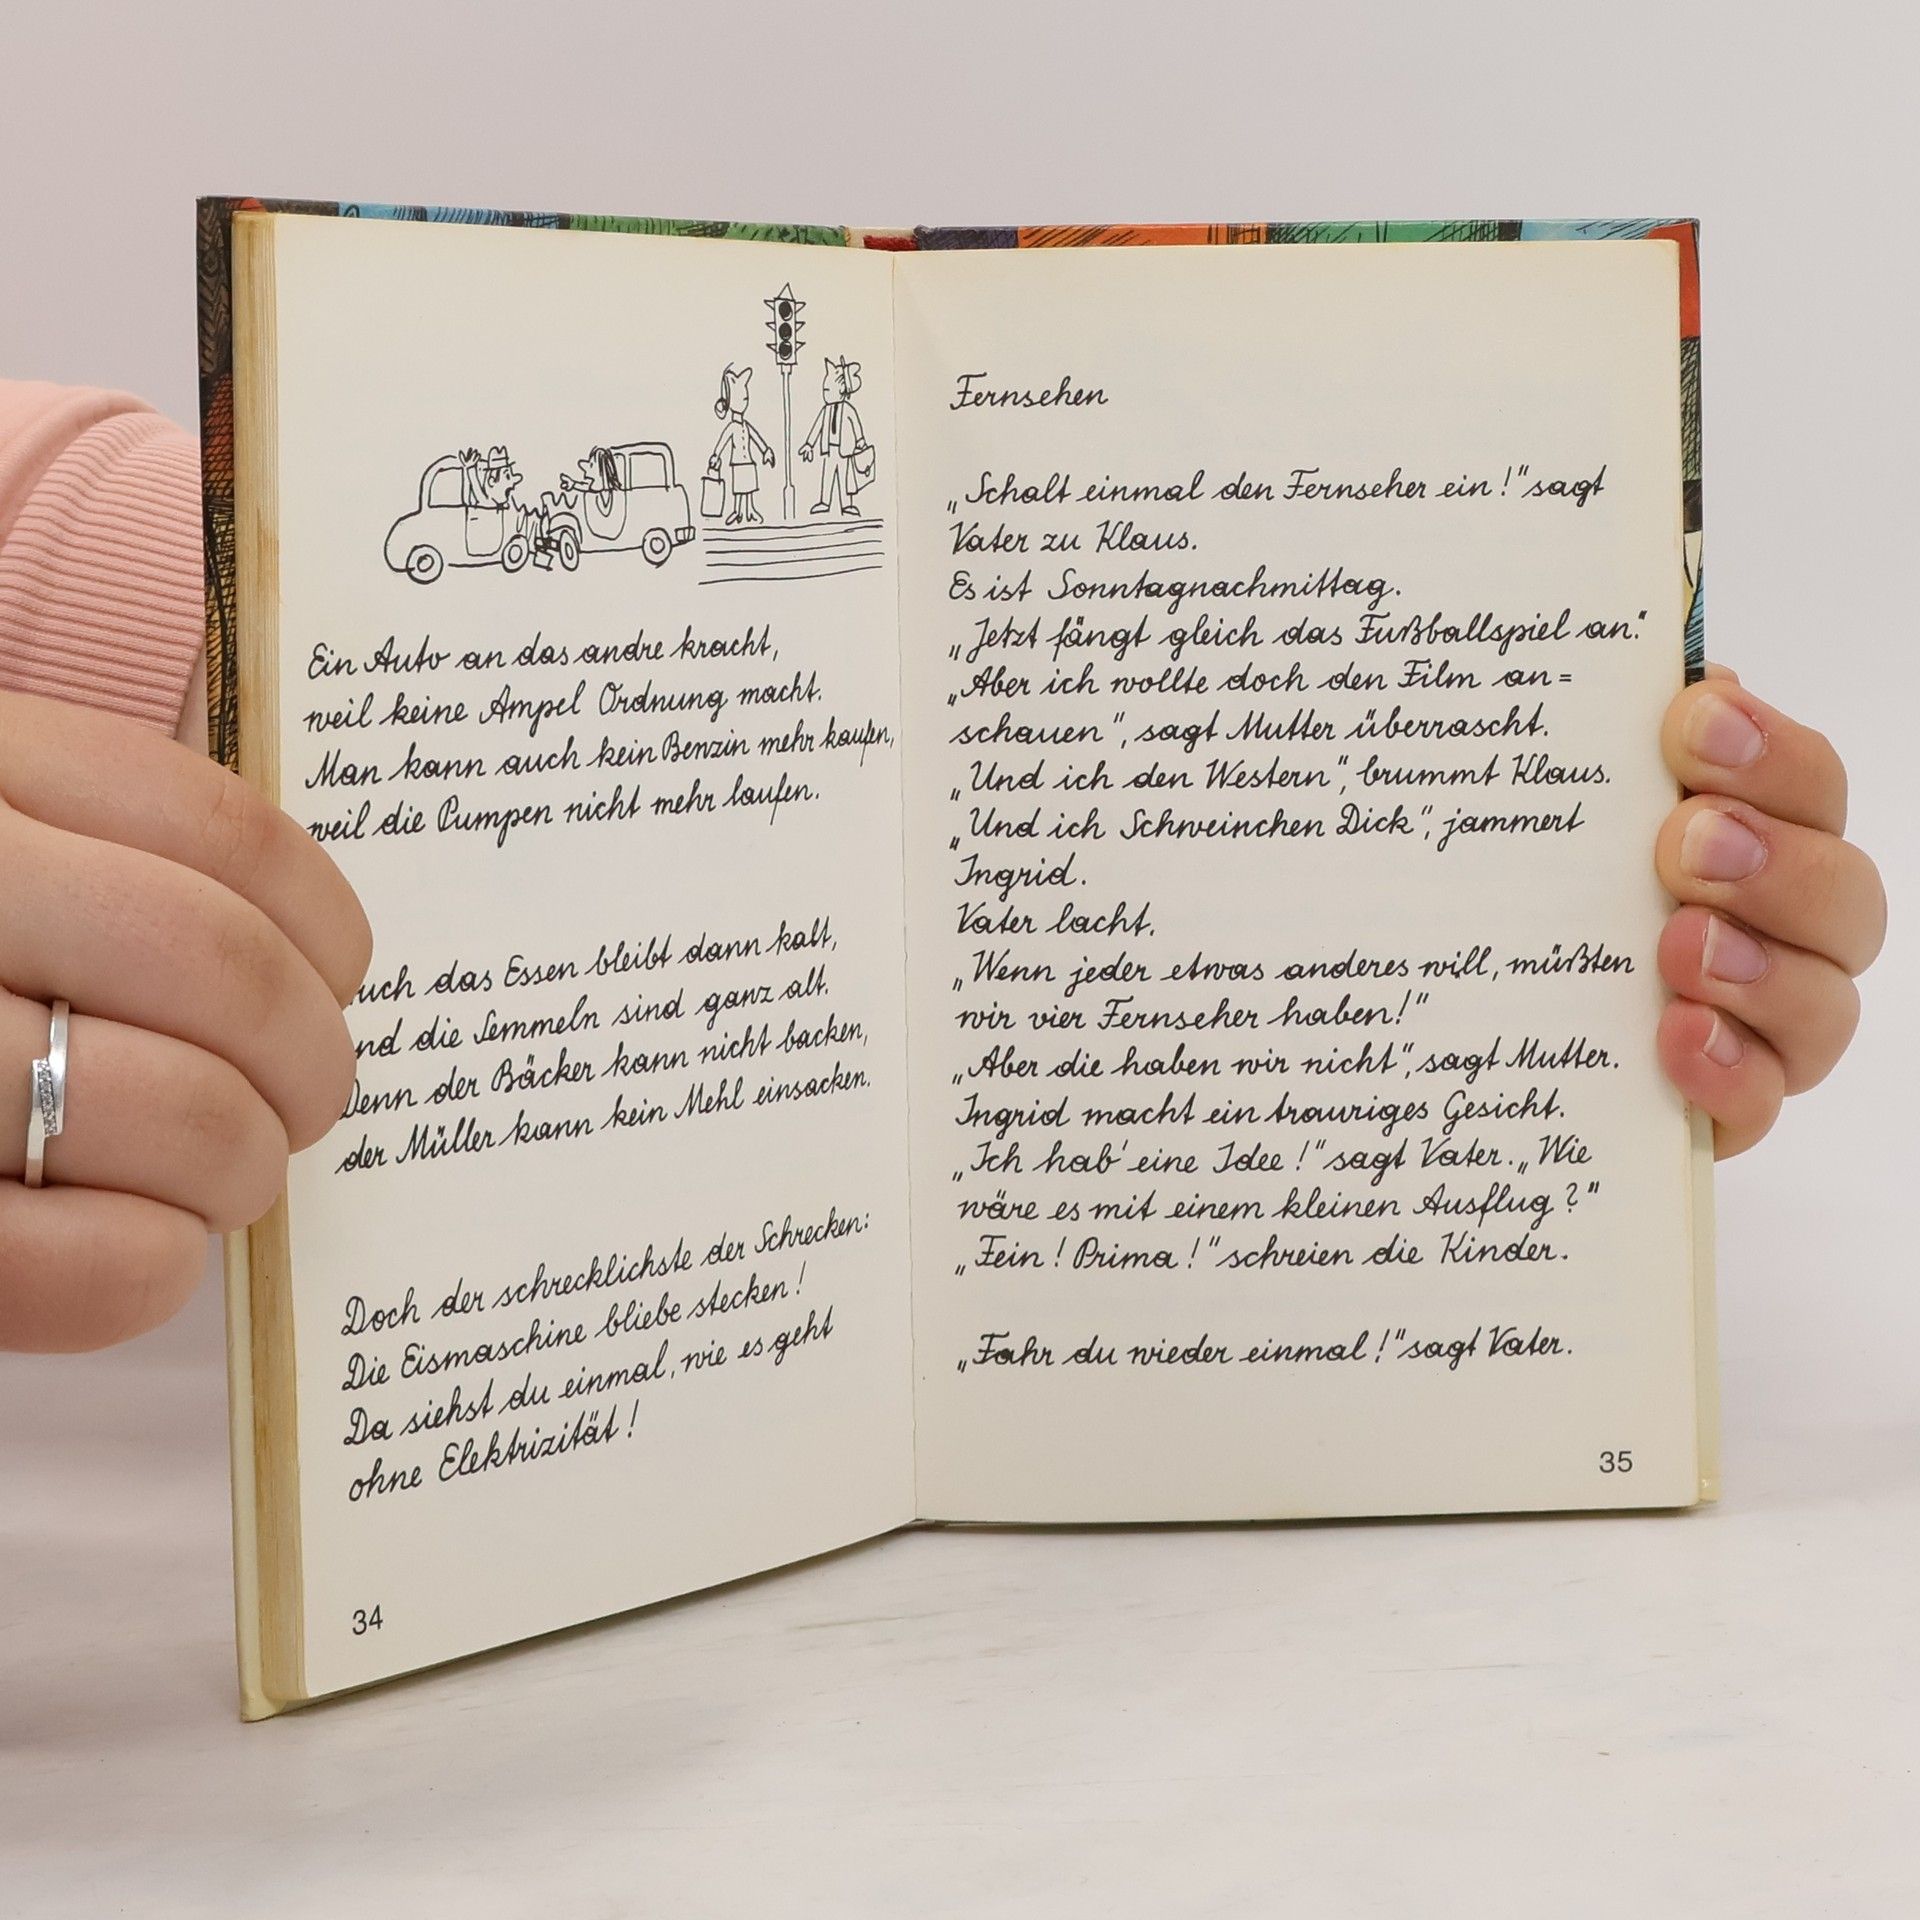 Ein Auto an das andre kracht,
weil keine Ampel Ordnung macht.
Man kann auch kein Benzin mehr kaufen,
weil die Pumpen nicht mehr laufen.
das Essen bleibt dann kalt,
die Semmeln sind ganz alt.
Denn der Bäcker kann nicht backen,
der Müller kann kein Mehl einsacken.
Doch der schrecklichste der Schrecken:
Die Eismaschine bliebe stecken!
Da siehst du einmal, wie es geht
ohne Elektrizität!
34
Fernsehen
„Schalt einmal den Fernseher ein!" sagt
Vater zu Klaus.
Es ist Sonntagnachmittag.
„Jetzt fängt gleich das Fußballspiel an."
„Aber ich wollte doch den Film an=
schauen", sagt Mutter überrascht.
„Und ich den Western", brummt Klaus.
„Und ich Schweinchen Dick", jammert
Ingrid.
Vater lacht.
„Wenn jeder etwas anderes will, müßten
wir vier Fernseher haben!"
„Aber die haben wir nicht", sagt Mutter.
Ingrid macht ein trauriges Gesicht.
„Ich hab' eine Idee!" sagt Vater. „Wie
wäre es mit einem kleinen Ausflug?"
„Fein! Prima!" schreien die Kinder.
„Fahr du wieder einmal!" sagt Vater.
35